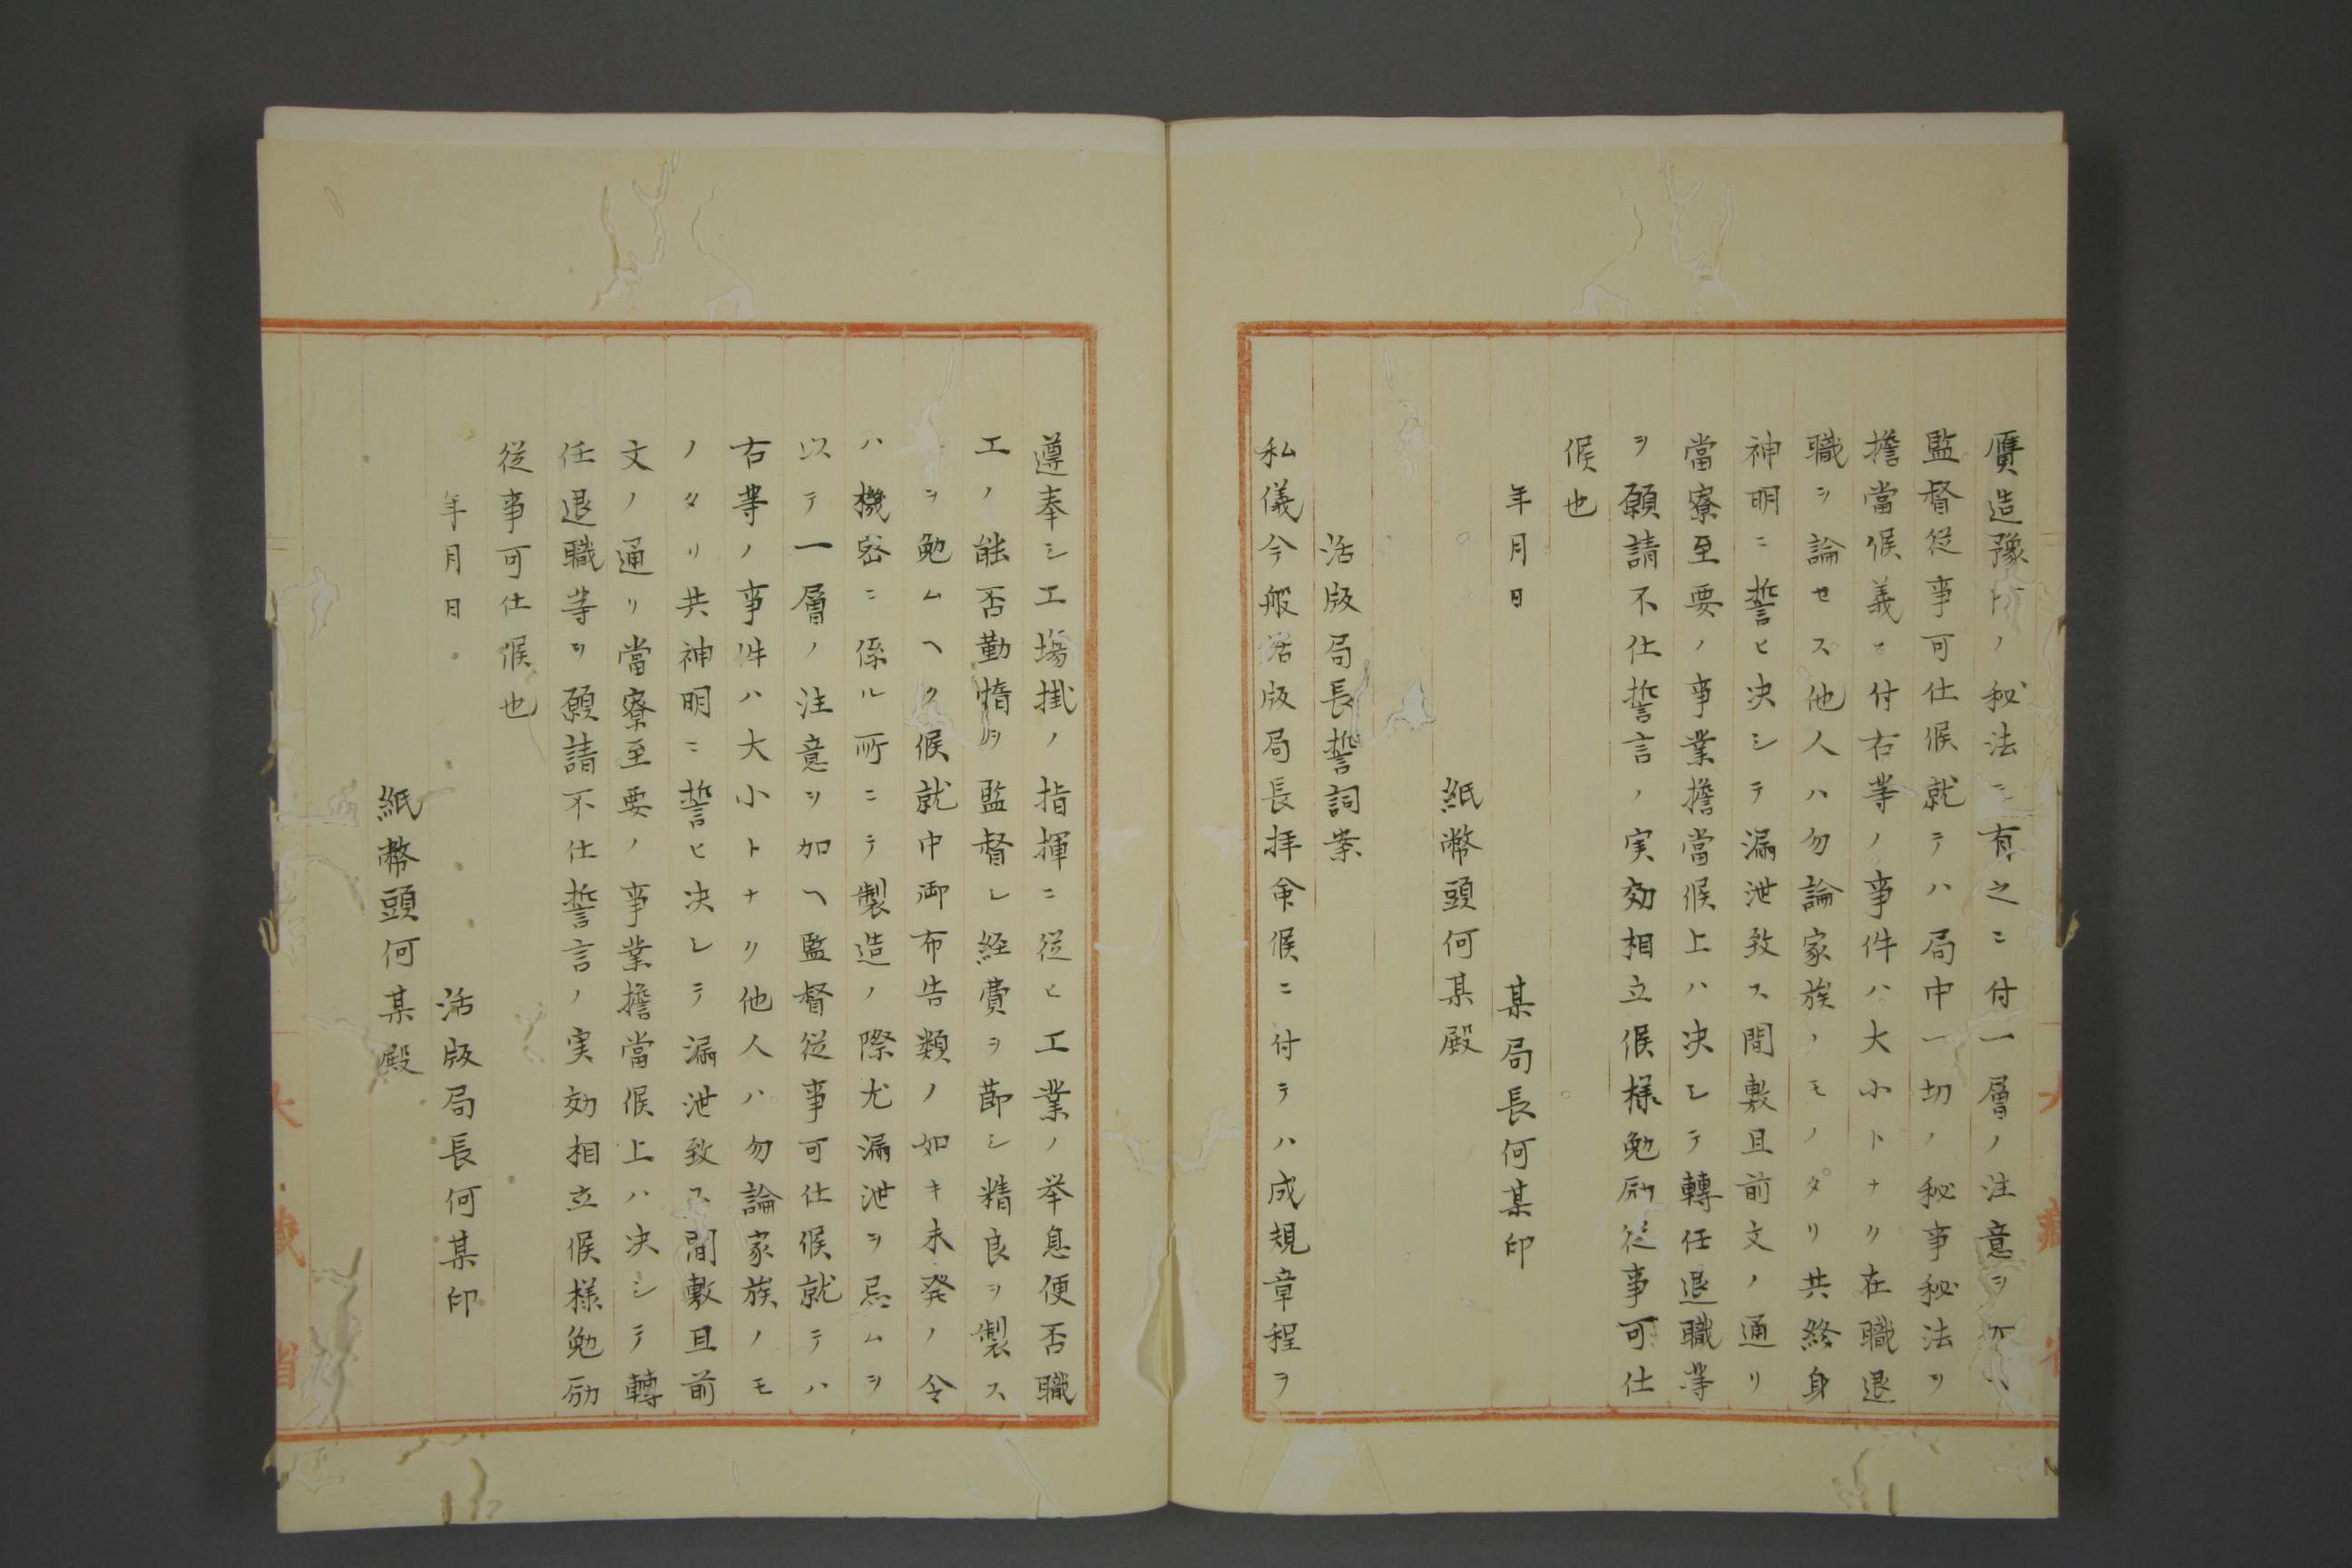 贋造豫防ノ秘法ニ有之ニ付一層ノ注意ヲ加へ
監督従事可仕候就テハ局中一切ノ秘事秘法ヲ
擔當候義ニ付右等ノ事件ハ大小トナク在職退
職ヲ論セス他人ハ勿論家族ノモノタリ共終身
神明ニ誓ヒ决シテ漏泄致ス間敷且前文ノ通リ
當寮至要ノ事業擔當候上ハ决シテ轉任退職等
ヲ願請不仕誓言ノ実効相立候様勉励従事可仕
候也
年月日
某局長何某印
紙幣頭何某殿
活版局長誓詞案
私儀今般活版局長拝命候ニ付テハ成規章程ヲ
遵奉シ工塲掛ノ指揮ニ従ヒ工業ノ挙息便否職
工ノ能否勤惰ヲ監督シ経費ヲ節シ精良ヲ製ス
ヲ勉ムヘク候就中御布告類ノ如キ未発ノ令
ハ機密ニ係ル所ニテ製造ノ際尤漏泄ヲ忌ムヲ
以テ一層ノ注意ヲ加ヘ監督従事可仕候就テハ
右等ノ事件ハ大小トナク他人ハ勿論家族ノモ
ノタリ共神明ニ誓ヒ决シテ漏泄致ス間敷且前
文ノ通リ當寮至要ノ事業擔當候上ハ决シテ轉
任退職等ヲ願請不仕誓言ノ実効相立候様勉励
従事可仕候也
年月日
活版局長何某印
紙幣頭何某殿